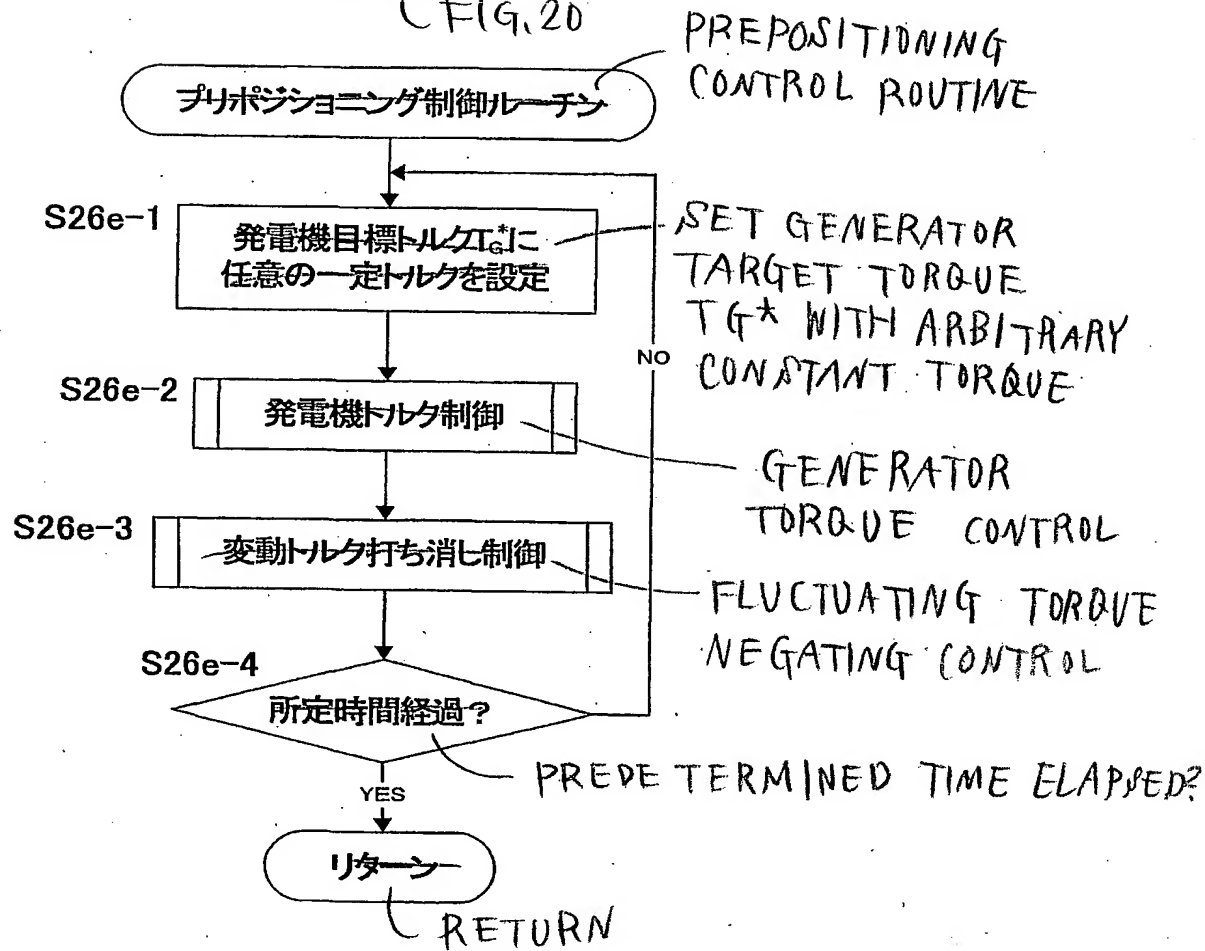 FIG. 20
プリポジショニング制御ルーチン
PREPOSITIONING
CONTROL ROUTINE
S26e-1
発電機目標トルクTG*に
任意の一定トルクを設定
SET GENERATOR
TARGET TORQUE
TG* WITH ARBITRARY
CONSTANT TORQUE
NO
S26e-2
発電機トルク制御
GENERATOR
TORQUE CONTROL
S26e-3
変動トルク打ち消し制御
FLUCTUATING TORQUE
NEGATING CONTROL
S26e-4
所定時間経過?
PREDETERMINED TIME ELAPSED?
YES
リターン
RETURN